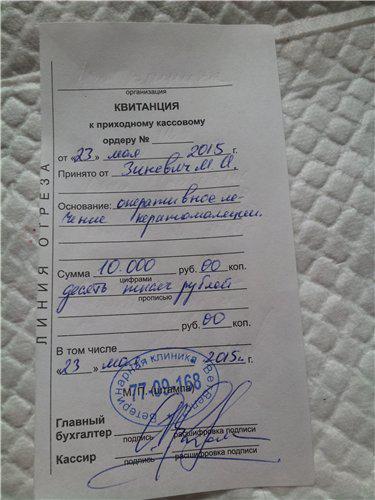 организация
КВИТАНЦИЯ
к приходному кассовому
ордеру №
от «23» мая 2015 г.
Принято от Зиневич М И.
Основание: оперативное ле-
чение кератомаляции.
Сумма 10.000 руб. 00 коп.
цифрами
десять тысяч рублей
прописью
руб. 00 коп.
В том числе
«23» мая 2015 г.
М.П. (штампа)
ветеринарная клиника
77-09-168
Главный
бухгалтер
подпись расшифровка подписи
Кассир
подпись расшифровка подписи
ЛИНИЯ ОТРЕЗА